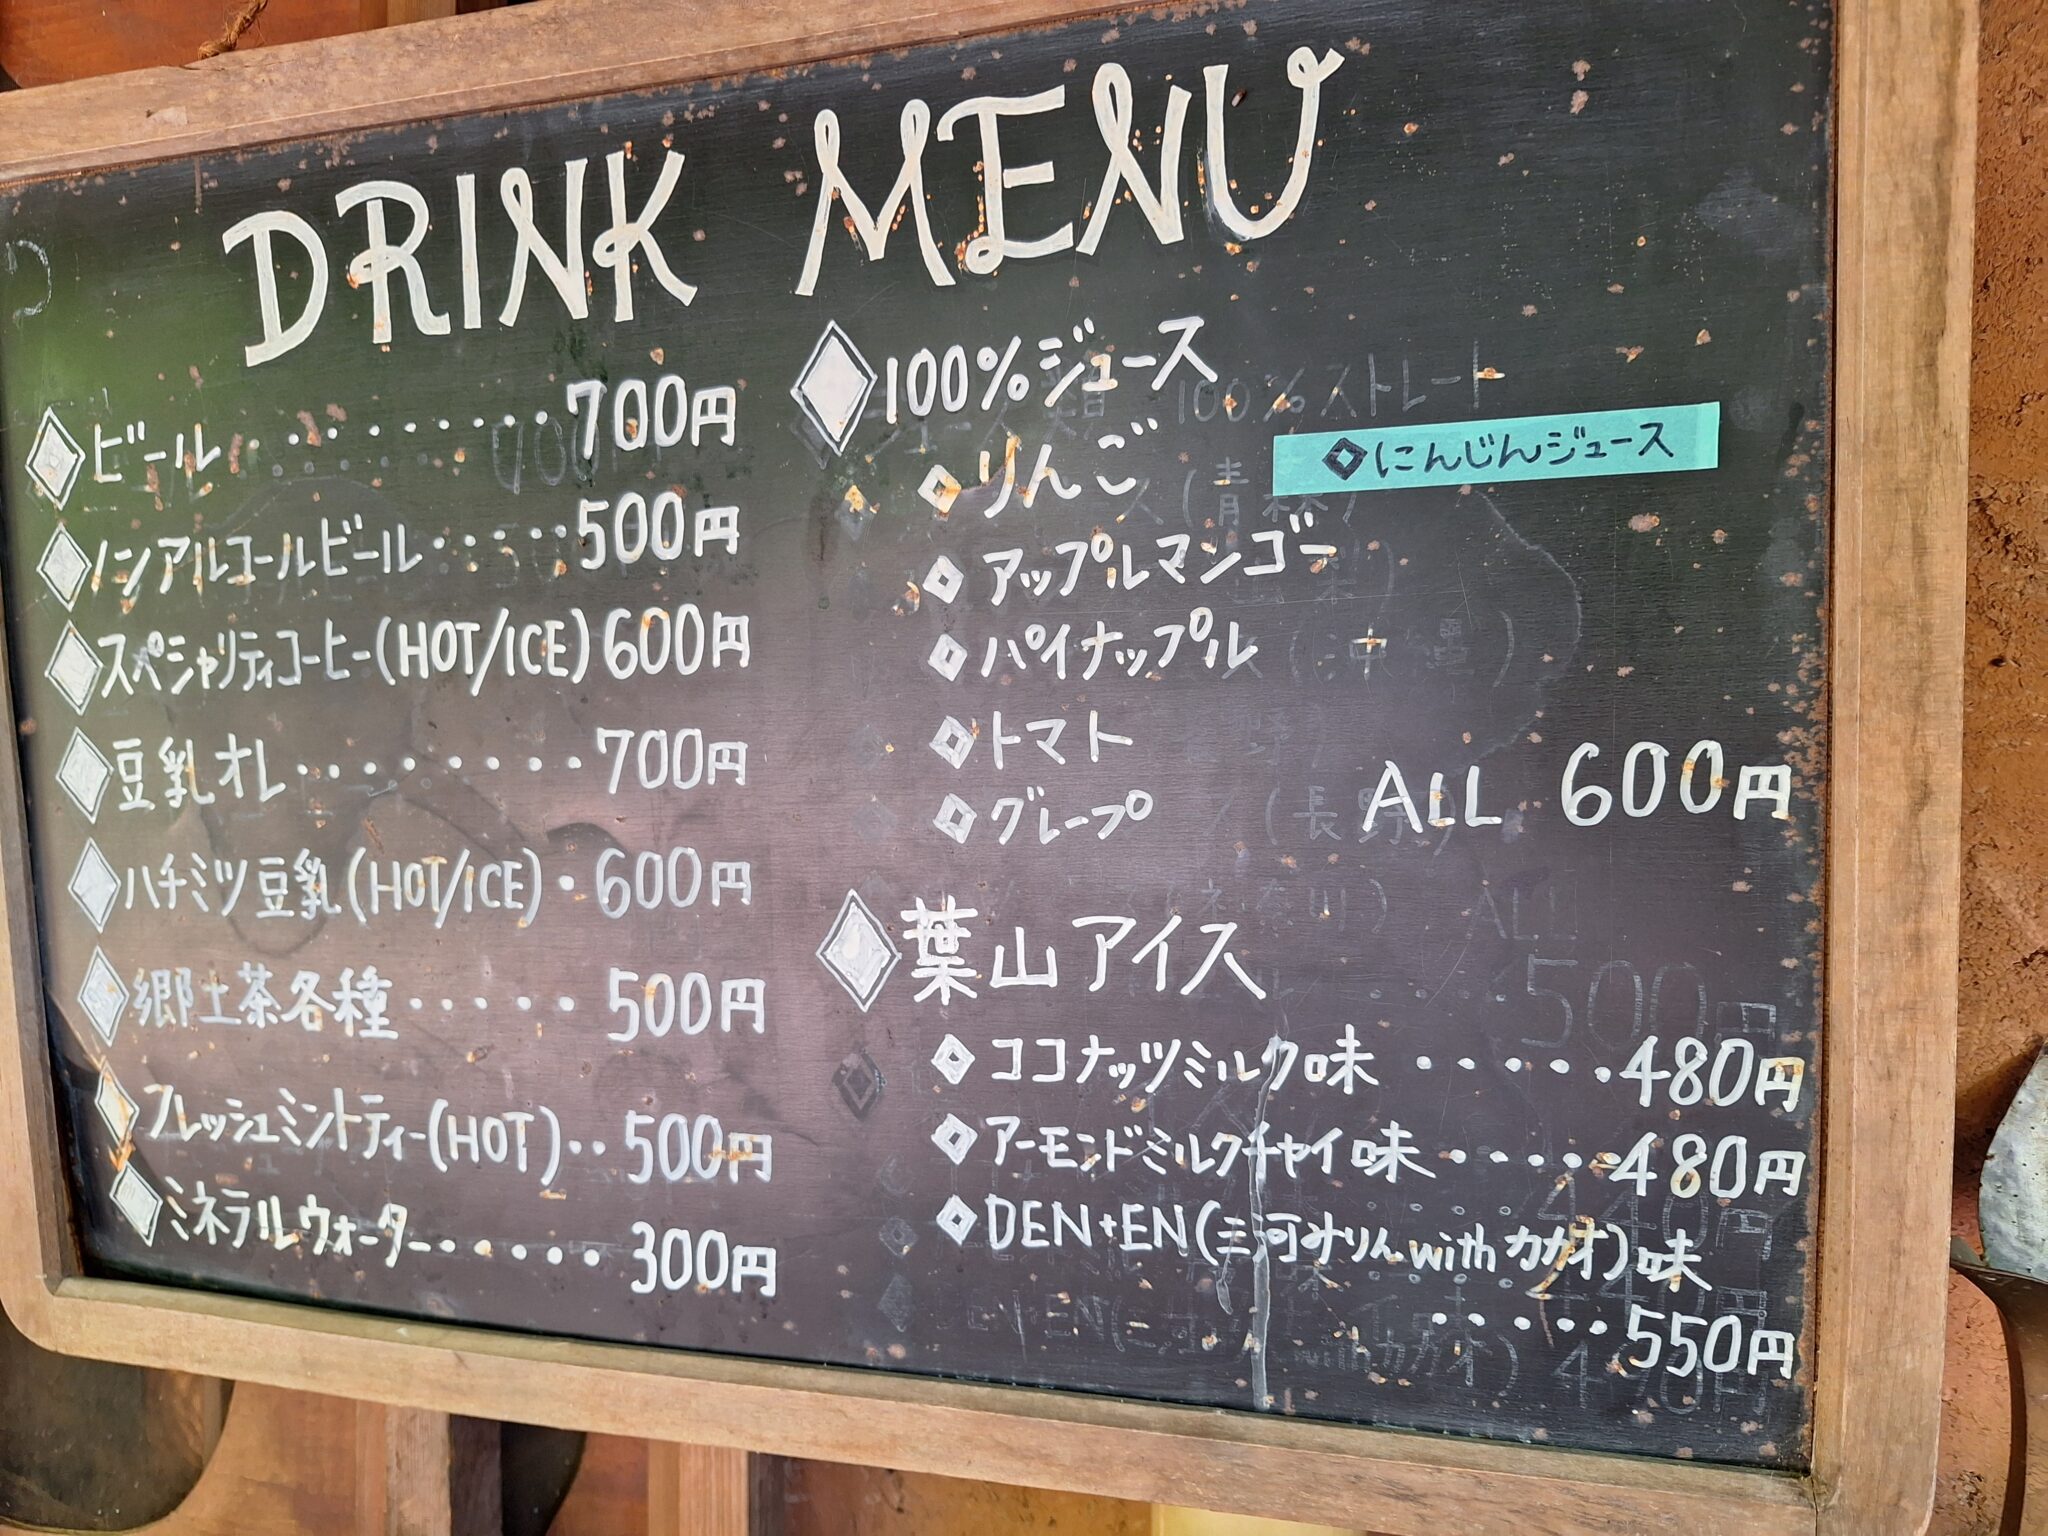 DRINK MENU
ビール・・・・・・・・・・700円
ノンアルコールビール・・・・・・500円
スペシャリティコーヒー(HOT/ICE)600円
豆乳オレ・・・・・・・・・700円
ハチミツ豆乳(HOT/ICE)・600円
郷土茶各種・・・・・500円
フレッシュミントティー(HOT)・・500円
ミネラルウォーター・・・・・・300円
100%ジュース
りんご
にんじんジュース
アップルマンゴー
パイナップル
トマト
グレープ
ALL 600円
葉山アイス
ココナッツミルク味・・・・・・480円
アーモンドミルクチャイ味・・・・・480円
DEN+EN(三河みりんwithカカオ)味
・・・・・・550円